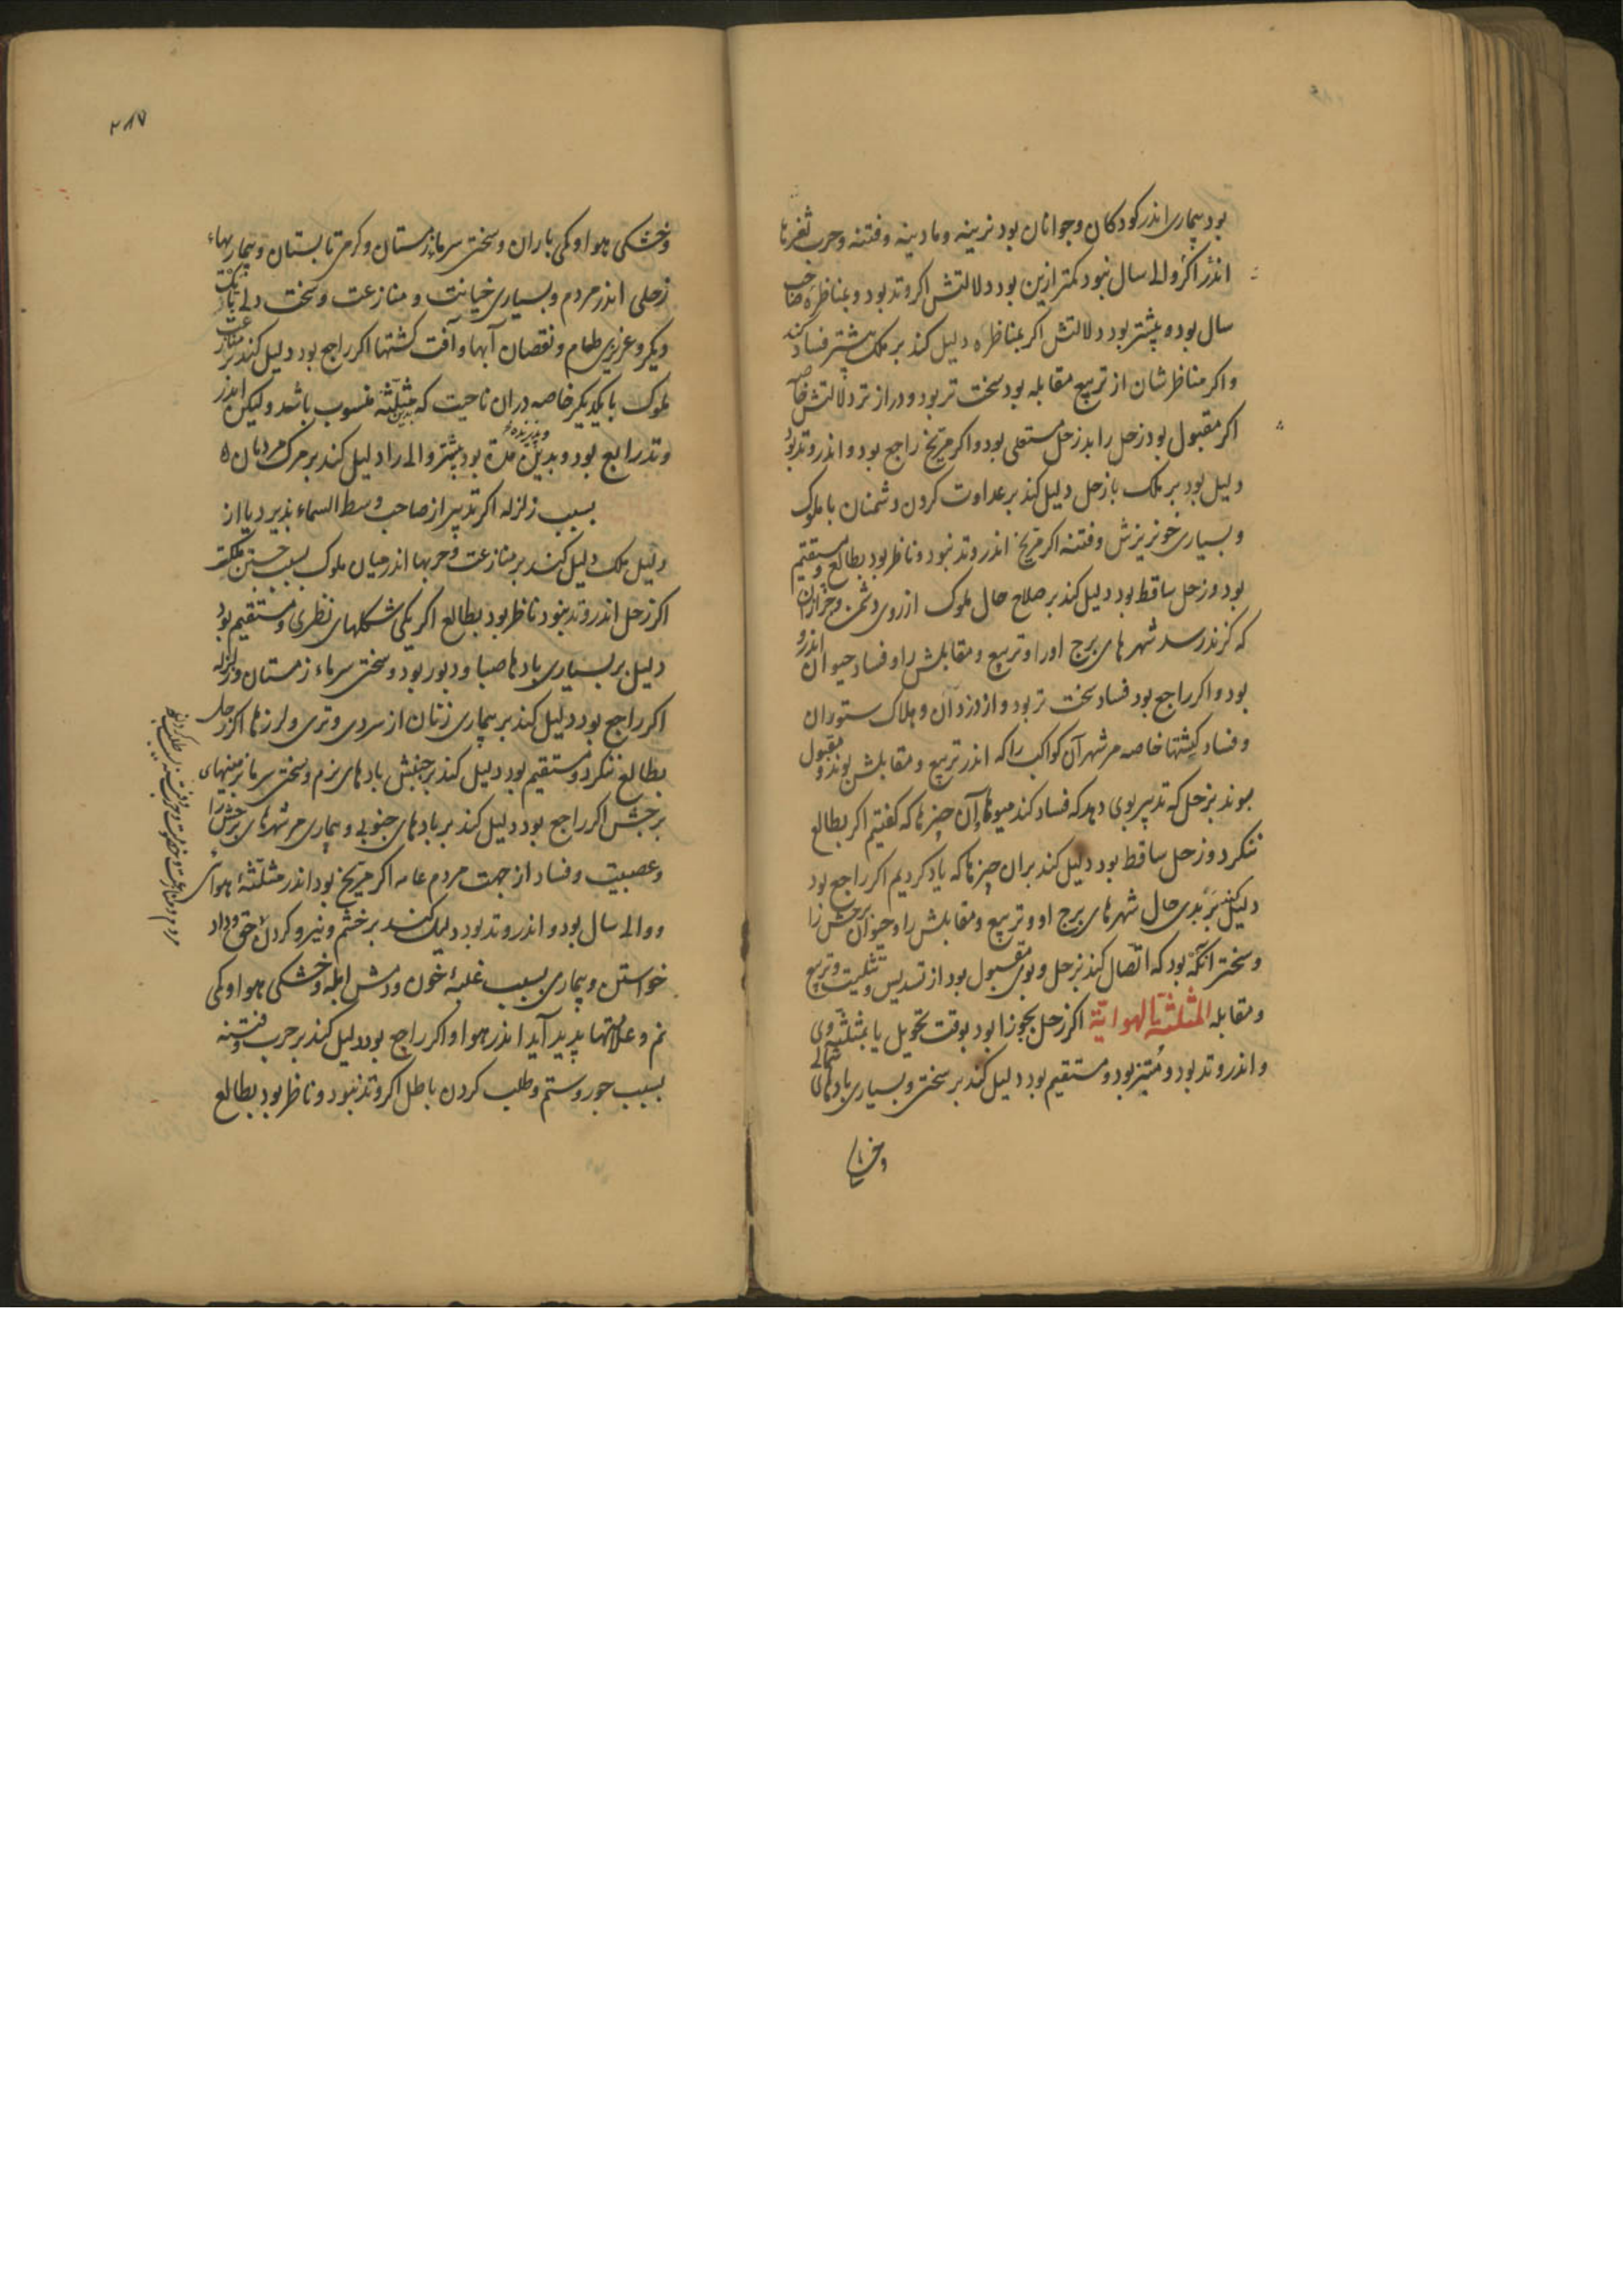 بود بیماری اندر کودکان و جوانان بود نرینه و مادینه و فتنه و حرب ثغرها
اندر اکر والی سال نبود کمتر ازین بود دلالتش اکر وتد بود و بمناظره صاحب
سال بود و بیشتر بود دلالتش اکر بمناظره دلیل کند بر ملک بیشتر فساد کند
واکر مناظرشان از تربیع مقابله بود سخت تر بود و دراز تر دلالتش خاصه
اکر مقبول بود زحل را بد زحل مستعلی بود و اکر مریخ راجع بود و اندر وتد بود
دلیل بود بر ملک با زحل دلیل کند بر عداوت کردن دشمنان با ملوک
و بسیاری خونریزش و فتنه اکر مریخ اندر وتد نبود و ناظر بود بطالع و مستقیم
بود و زحل ساقط بود دلیل کند بر صلاح حال ملوک از روی دشمن و جز از آن
که کزند رسد شهرهای برج او را و تربیع و مقابلش را و فساد حیوان اندرو
بود و اکر راجع بود فساد سخت تر بود و از دزدان و هلاک ستوران
و فساد کشتها خاصه مر شهر آن کواکب را که اندر تربیع و مقابلش بوند و مقبول
بوند بزحل که تدبیر بوی دهد که فساد کند میوها و آن چیزها که کفتیم اکر بطالع
ننکرد و زحل ساقط بود دلیل کند بران چیزها که یاد کردیم اکر راجع بود
دلیل کند بر بدی حال شهرهای برج او و تربیع و مقابلش را و حیوان برجش را
و سختر آنکه بود که اتصال کند بزحل و بوی مقبول بود از تسدیس و تثلیث و تربیع
و مقابله المثلثة الهوایة اکر زحل بجوزا بود بوقت تحویل یا بمثلثه وی
و اندر وتد بود و متیز بود و مستقیم بود دلیل کند بر سختی و بسیاری بادهای شمالی
۲۸۷
و خشکی هوا و کمی باران و سختی سرما زمستان و کرمی تابستان و بیماریهاء
زحلی اندر مردم و بسیاری خیانت و منازعت و سخت دلی با یک
دیکر و عزیزی طعام و نقصان آبها و آفت کشتها اکر راجع بود دلیل کند بر منازعت
ملوک با یکدیکر خاصه دران ناحیت که بدین مثلثه منسوب باشد ولیکن اندر
وتد رابع بود و بدین مده بود بیشتر والی را دلیل کند بر مرک مردمان
بسبب زلزله اکر تدبیر از صاحب وسط السماء پذیرد یا از
دلیل ملک دلیل کند بر منازعت و حربها اندر میان ملوک بسبب جستن مملکت
اکر زحل اندر وتد نبود ناظر بود بطالع اکر یکی شکلهای نظری و مستقیم بود
دلیل بر بسیاری بادها صبا و دبور بود و سختی سرماء زمستان و زلزله
اکر راجع بود دلیل کند بر بیماری زنان از سردی و تری و لرزها اکر زحل
بطالع ننکرد و مستقیم بود دلیل کند بر جنبش بادهای نرم و سختی سرما بزمینهای
برجش اکر راجع بود دلیل کند بر بادهای جنوبی و بیماری مر شهرهای برجش را
و عصبیت و فساد از جهت مردم عامه اکر مریخ بود اندر مثلثه هوائی
و والی سال بود و اندر وتد بود دلیل کند بر خشم و نیرو کردن حق و داد
خواستن و بیماری بسبب غلبه خون و دمش ابله و خشکی هوا و کمی
نم و علامتها پدید آید اندر هوا و اکر راجع بود دلیل کند بر حرب و فتنه
بسبب جور و ستم و طلب کردن باطل اکر وتد نبود و ناظر بود بطالع